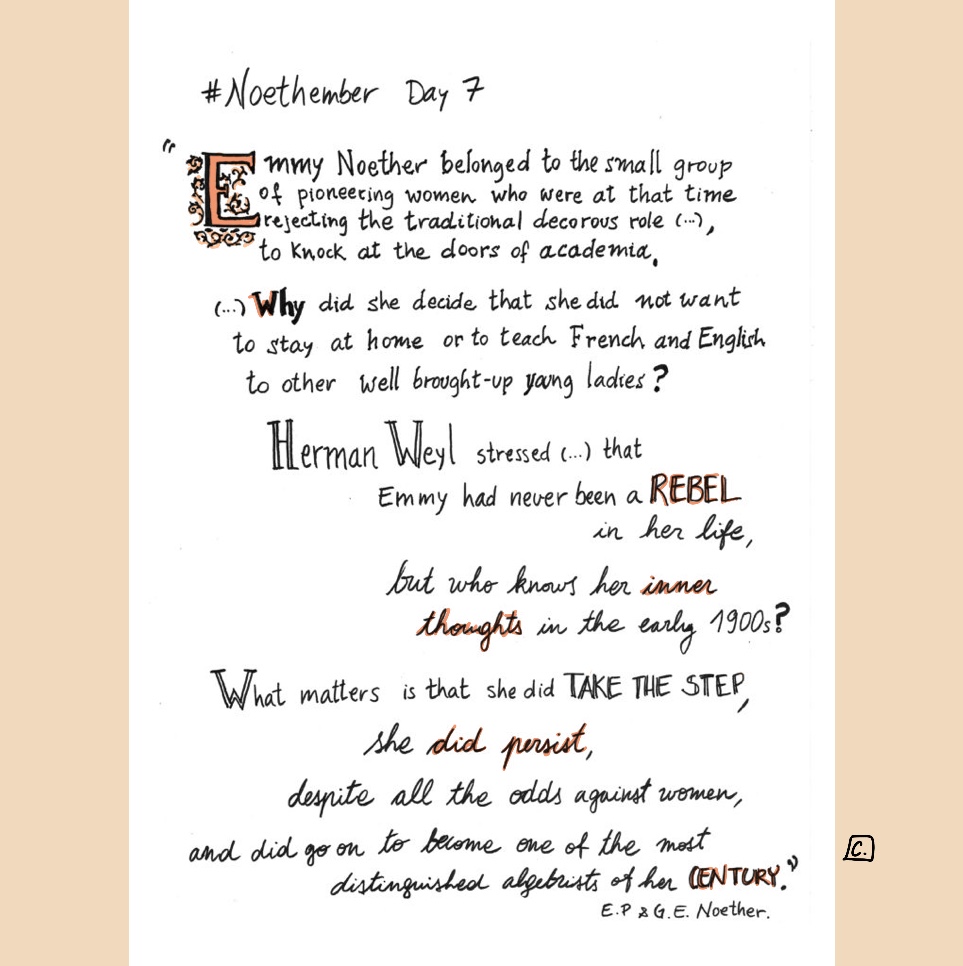 #Noethember Day 7
"Emmy Noether belonged to the small group
of pioneering women who were at that time
rejecting the traditional decorous role (...),
to knock at the doors of academia.
(...) Why did she decide that she did not want
to stay at home or to teach French and English
to other well brought-up young ladies?
Herman Weyl stressed (...) that
Emmy had never been a REBEL
in her life,
but who knows her inner
thoughts in the early 1900s?
What matters is that she did TAKE THE STEP,
she did persist,
despite all the odds against women,
and did go on to become one of the most
distinguished algebrists of her CENTURY."
E.P & G.E. Noether.
C.